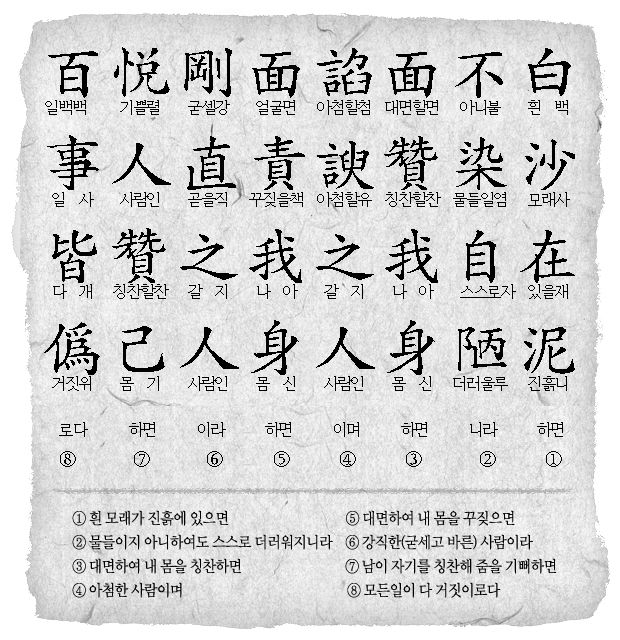 白 흰 백 沙 모래사 在 있을재 泥 진흙니 하면 ①
不 아니불 染 물들일염 自 스스로자 陋 더러울루 니라 ②
面 대면할면 贊 칭찬할찬 我 나 아 身 몸 신 하면 ③
諂 아첨할첨 諛 아첨할유 之 갈 지 人 사람인 이며 ④
面 얼굴면 責 꾸짖을책 我 나 아 身 몸 신 하면 ⑤
剛 굳셀강 直 곧을직 之 갈 지 人 사람인 이라 ⑥
悅 기쁠렬 人 사람인 贊 칭찬할찬 己 몸 기 하면 ⑦
百 일백백 事 일 사 皆 다 개 僞 거짓위 로다 ⑧
① 흰 모래가 진흙에 있으면
② 물들이지 아니하여도 스스로 더러워지니라
③ 대면하여 내 몸을 칭찬하면
④ 아첨한 사람이며
⑤ 대면하여 내 몸을 꾸짖으면
⑥ 강직한(굳세고 바른) 사람이라
⑦ 남이 자기를 칭찬해 줌을 기뻐하면
⑧ 모든일이 다 거짓이로다